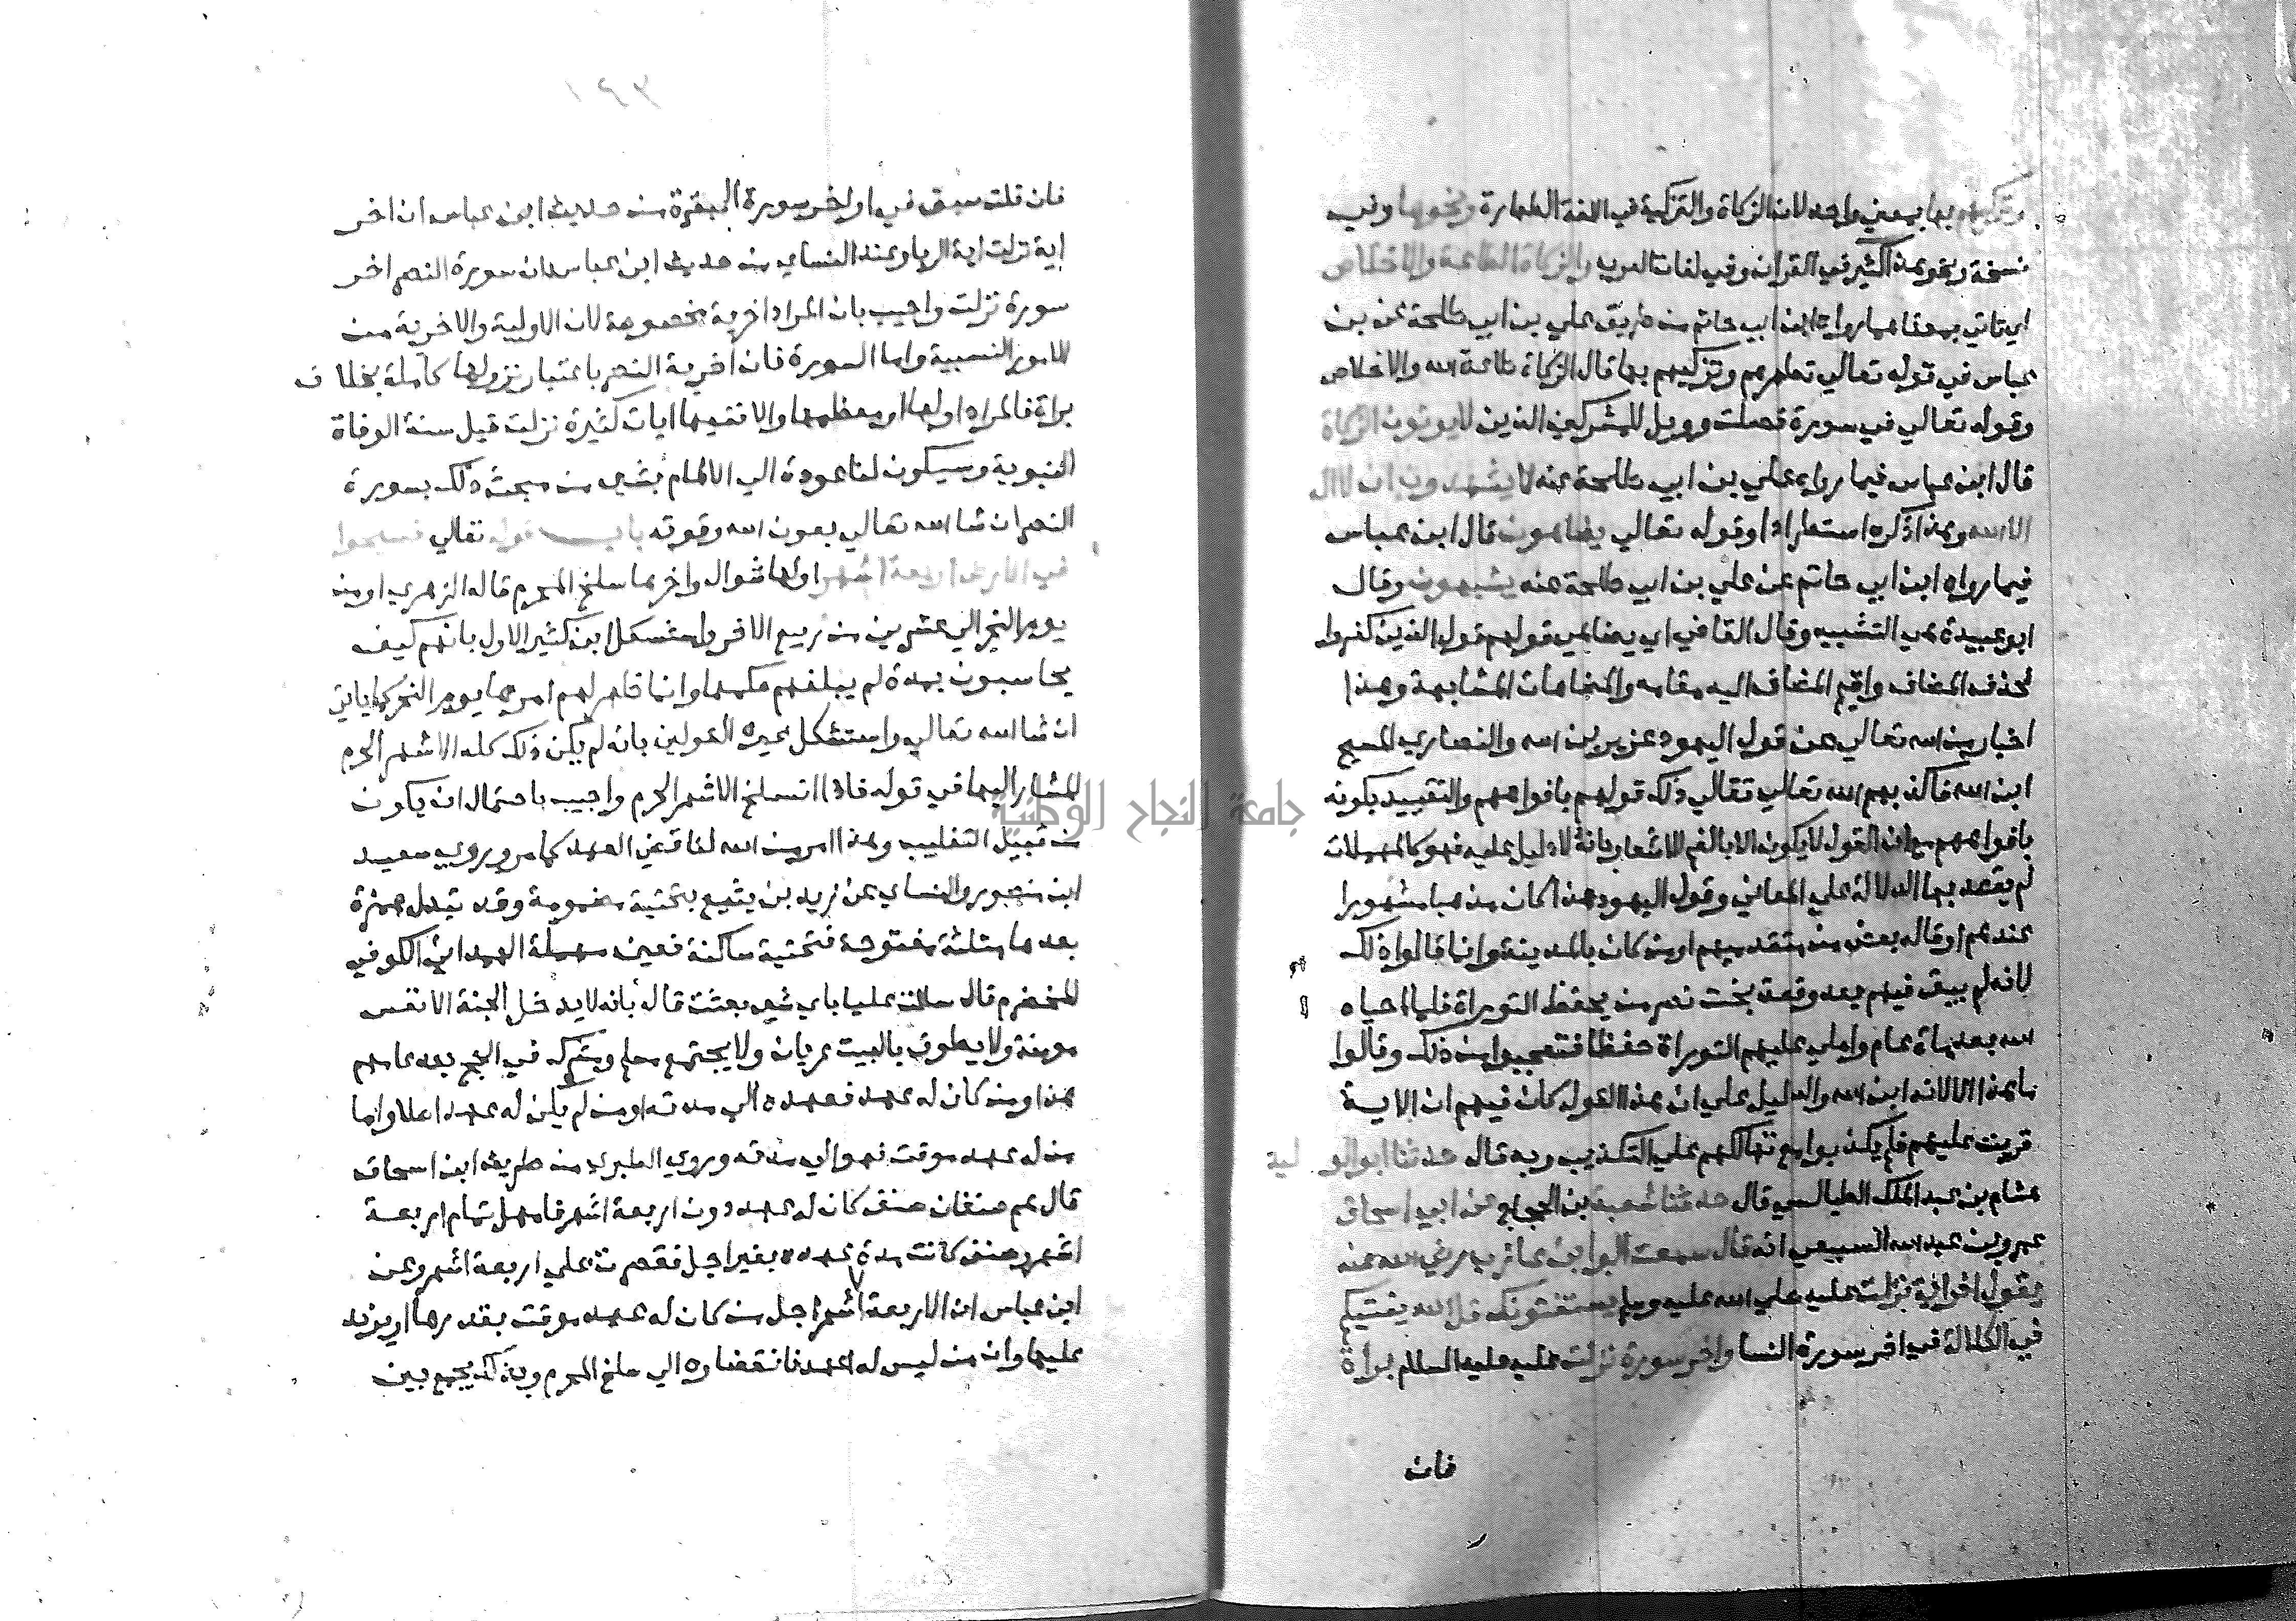 وتزكيهم بها بمعني واحد لان الزكاة والتزكية في اللغة الطهارة ونحوها وفي
نسخة ونحو هذا كثير في القران وفي لغات العرب والزكاة الطاعة والاخلاص
اي تاتي بمعناهما رواه ابن ابي حاتم من طريق علي بن ابي طلحة عن بن
عباس في قوله تعالي تطهرهم وتزكيهم بها قال الزكاة طاعة الله والاخلاص
وقوله تعالي في سورة فصلت وويل للمشركين الذين لا يوتون الزكاة
قال ابن عباس فيما رواه علي بن ابي طلحة عنه لا يشهدون ان لا اله
الا الله وهذا ذكره استطرادا وقوله تعالي يضاهون قال ابن عباس
فيما رواه ابن ابي حاتم عن علي بن ابي طلحة عنه يشبهون وقال
ابو عبيدة هي التشبيه وقال القاضي اي يضاهي قولهم قول الذين كفروا
فحذف المضاف واقيم المضاف اليه مقامه والمضاهات المشابهة وهذا
اخبار من الله تعالي عن قول اليهود عزير بن الله والنصاري المسيح
ابن الله فاكذبهم الله تعالي فقالي ذلك قولهم بافواههم والتقييد بكونه
بافواههم مع ان القول لا يكون الا بالفم للاشعار بانه لا دليل عليه فهو كالمهملات
لم يقصد بها الدلالة علي المعاني وقول اليهود هذا كان مذهبا مشهورا
عندهم او قاله بعض من متقدميهم او من كان بالمدينة وانما قالوا ذلك
لانه لم يبق فيهم بعد وقعة بخت نصر من يحفظ التوراة فلما احياه
الله بعد ماة عام واملي عليهم التوراة حفظا فتعجبوا من ذلك وقالوا
ما هذا الا لانه ابن الله والدليل علي ان هذا القول كان فيهم ان الاية
قريت عليهم فلم يكذبوا مع تهالكهم علي التكذيب وبه قال حدثنا ابو الو ليد
هشام بن عبد الملك الطيالسي قال حدثنا شعبة بن الحجاج عن ابي اسحاق
عمرو بن عبد الله السبيعي انه قال سمعت البرا بن عازب رضي الله عنه
يقول اخر اية نزلت عليه صلي الله عليه وسلم يستفتونك قل الله يفتيكم
في الكلالة في اخر سورة النسا واخر سورة نزلت عليه عليه السلام براة
فان
فان قلت سبق في اواخر سورة البقرة من حديث ابن عباس ان اخر
اية نزلت اية الربا وعند النساي من حديث ابن عباس ان سورة النصر اخر
سورة نزلت واجيب بان المراد اخرية مخصوصة لان الاولية والاخرية من
الامور النسبية واما السورة فان اخرية النصر باعتبار نزولها كاملة بخلاف
براة فالمراد اولها او معظمها والا ففيها ايات كثيرة نزلت قبل سنة الوفاة
النبوية وسيكون لنا عودة الي الالمام بشي من مبحث ذلك بسورة
النصر ان شا الله تعالي بعون الله وقوته باب قوله تعالي فسيحوا
في الارض اربعة اشهر اولها شوال واخرها سلخ المحرم قاله الزهري او من
يوم النحر الي عشرين من ربيع الاخر واستشكل ابن كثير الاول بانهم كيف
يحاسبون بمدة لم يبلغهم حكمها وانما ظهر لهم امرها يوم النحر كما ياتي
ان شا الله تعالي واستشكل غيره القولين بانه لم يكن ذلك كله الاشهر الحرم
المشار اليها في قوله فاذا انسلخ الاشهر الحرم واجيب باحتمال ان يكون
من قبيل التغليب وهذا امر من الله لناقض العهد كما مر وروي سعيد
ابن منصور والنساي عن زيد بن يثيع بتحتية مضمومة وقد تبدل همزة
بعدها مثلثة مفتوحة فتحتية ساكنة فعين مهملة الهمداني الكوفي
المخضرم قال سالت عليا باي شي بعثت قال بانه لا يدخل الجنة الا نفس
مومنة ولا يطوف بالبيت عريان ولا يجتمع مسلم ومشرك في الحج بعد عامهم
هذا ومن كان له عهد فعهده الي مدته ومن لم يكن له عهد اصلا واما
من له عهد موقت فهو الي مدته وروي الطبري من طريق ابن اسحاق
قال هم صنفان صنف كان له عهد دون اربعة اشهر فامهل تمام اربعة
اشهر وصنف كانت مدة عهده بغير اجل فقصرت علي اربعة اشهر وعن
ابن عباس ان الاربعة اشهر اجل من كان له عهد موقت بقدرها او يزيد
عليها وان من ليس له عهد فانقضاوه الي سلخ المحرم وبذلك يجمع بين
جامعة النجاح الوطنية